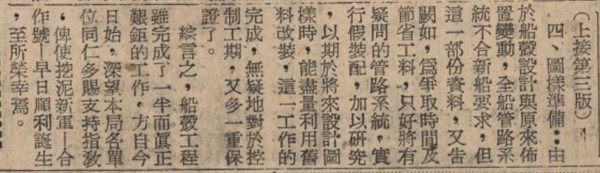 （上接第三版）
四、圖樣準備：由
於船殼設計與原來佈
置變動，全船管路系
統不合新船要求，但
這一部份資料，又告
闕如，爲爭取時間及
節省工料，只好將有
疑問的管路系統，實
行假裝配，加以研究
，以期於將來設計圖
樣時，能盡量利用舊
料改裝，這一工作的
完成，無疑地對於控
制工期，又多一重保
證了。
綜言之，船殼工程
雖完成了一半而眞正
艱鉅的工作，方自今
日始，深望本局各單
位同仁多賜支持指敎
，俾使挖泥新軍—合
作號—早日順利誕生
，至所榮幸焉。